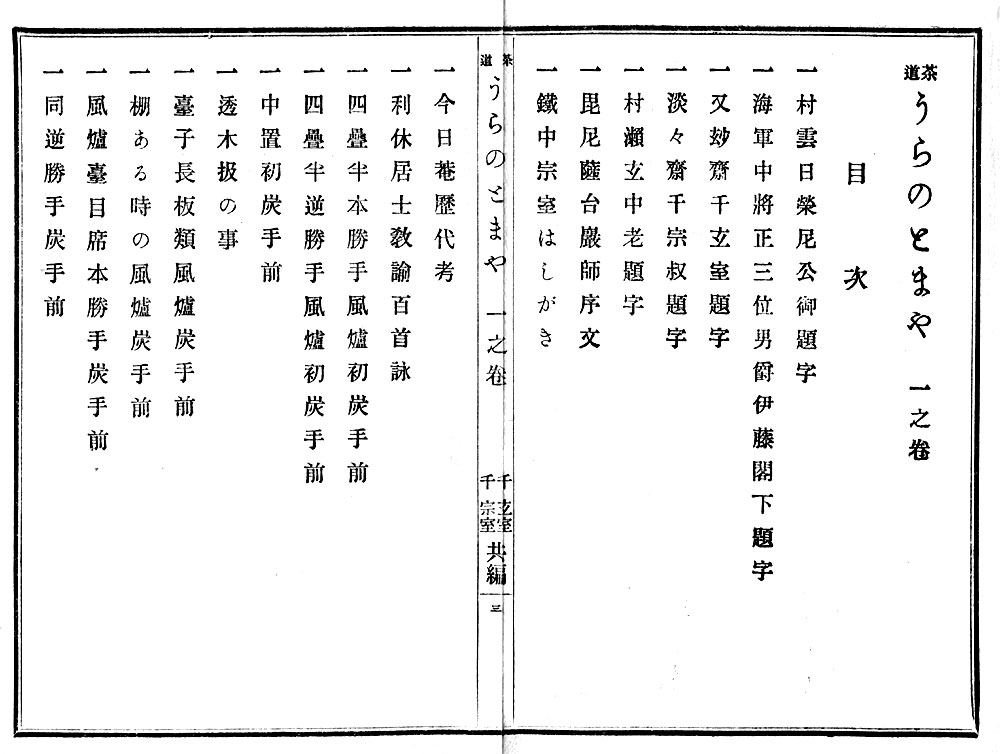 茶道 うらのとまや 一之卷
目次
一 村雲日榮尼公御題字
一 海軍中將正三位男爵伊藤閣下題字
一 又玅齋千玄室題字
一 淡々齋千宗叔題字
一 村瀬玄中老題字
一 毘尼薩台巖師序文
一 鐵中宗室はしがき
茶道 うらのとまや 一之卷
千玄室
千宗室
共編
三
一 今日菴歷代考
一 利休居士敎諭百首詠
一 四疊半本勝手風爐初炭手前
一 四疊半逆勝手風爐初炭手前
一 中置初炭手前
一 透木扱の事
一 臺子長板類風爐炭手前
一 棚ある時の風爐炭手前
一 風爐臺目席本勝手炭手前
一 同逆勝手炭手前